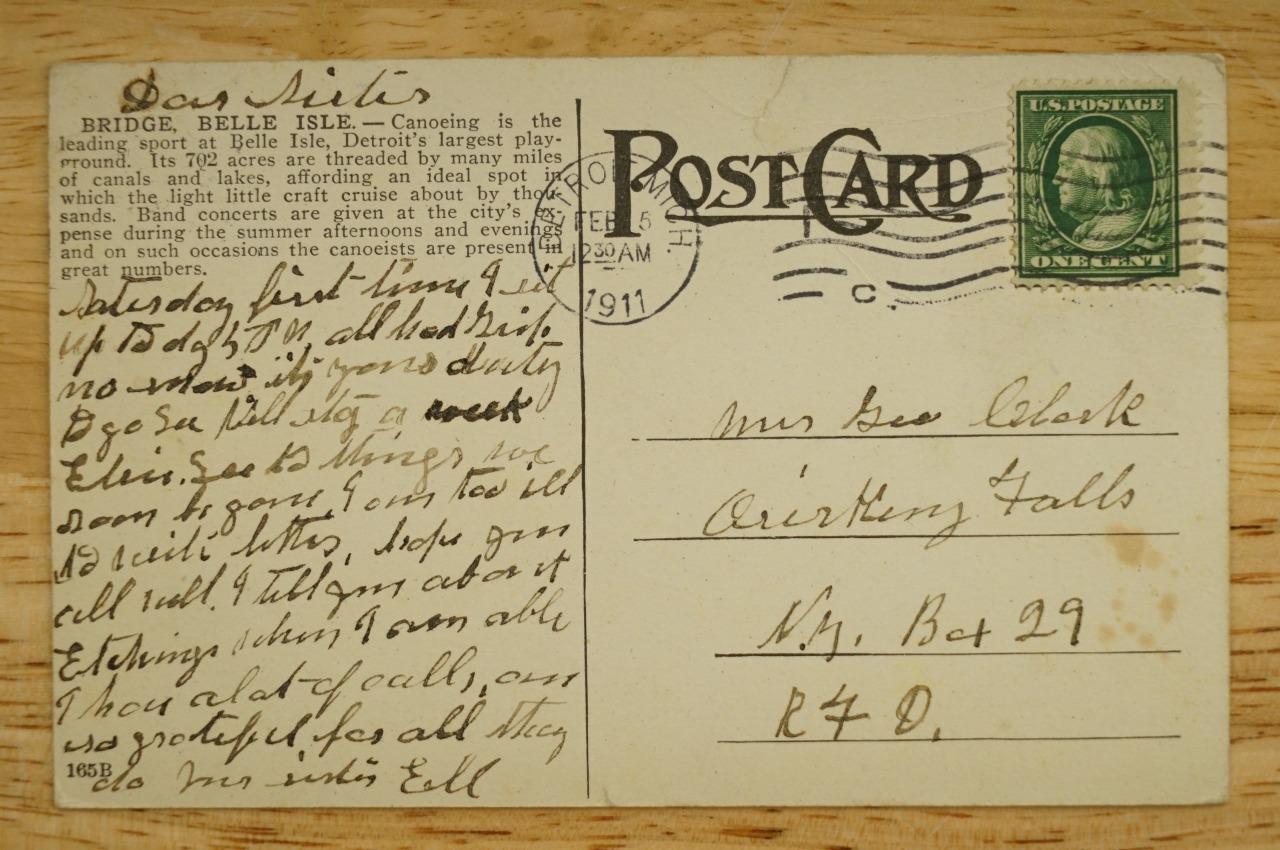 Dear Sister
BRIDGE, BELLE ISLE.—Canoeing is the
leading sport at Belle Isle, Detroit's largest play-
ground. Its 702 acres are threaded by many miles
of canals and lakes, affording an ideal spot in
which the light little craft cruise about by thou-
sands. Band concerts are given at the city's ex-
pense during the summer afternoons and evenings
and on such occasions the canoeists are present in
great numbers.
Saturday first time I sit
up all had Grip.
no its your duty
go See a week
See to things we
soon be gone, I am too ill
to write letters, hope you
all well. I tell you about
Etchings when I am able
I have a lot of calls, am
so grateful for all they
do your sister Ell
165B
POST CARD
DETROIT, MICH
FEB 5
12 30 AM
1911
C
U.S. POSTAGE
ONE CENT
Mrs Geo Clark
Falls
N.Y. Box 29
R F D.